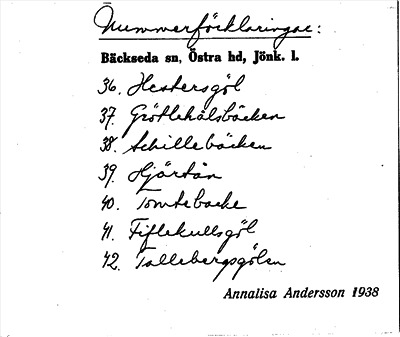 Nummerförklaringar:
Bäckseda sn, Östra hd, Jönk. l.
36. Hestersgöl
37. Grötlehålsbäcken
38. Achillebäcken
39. Hjärtån
40. Tomtebacke
41. Fiflekullsgöl
42. Tallebergsgölen
Annalisa Andersson 1938